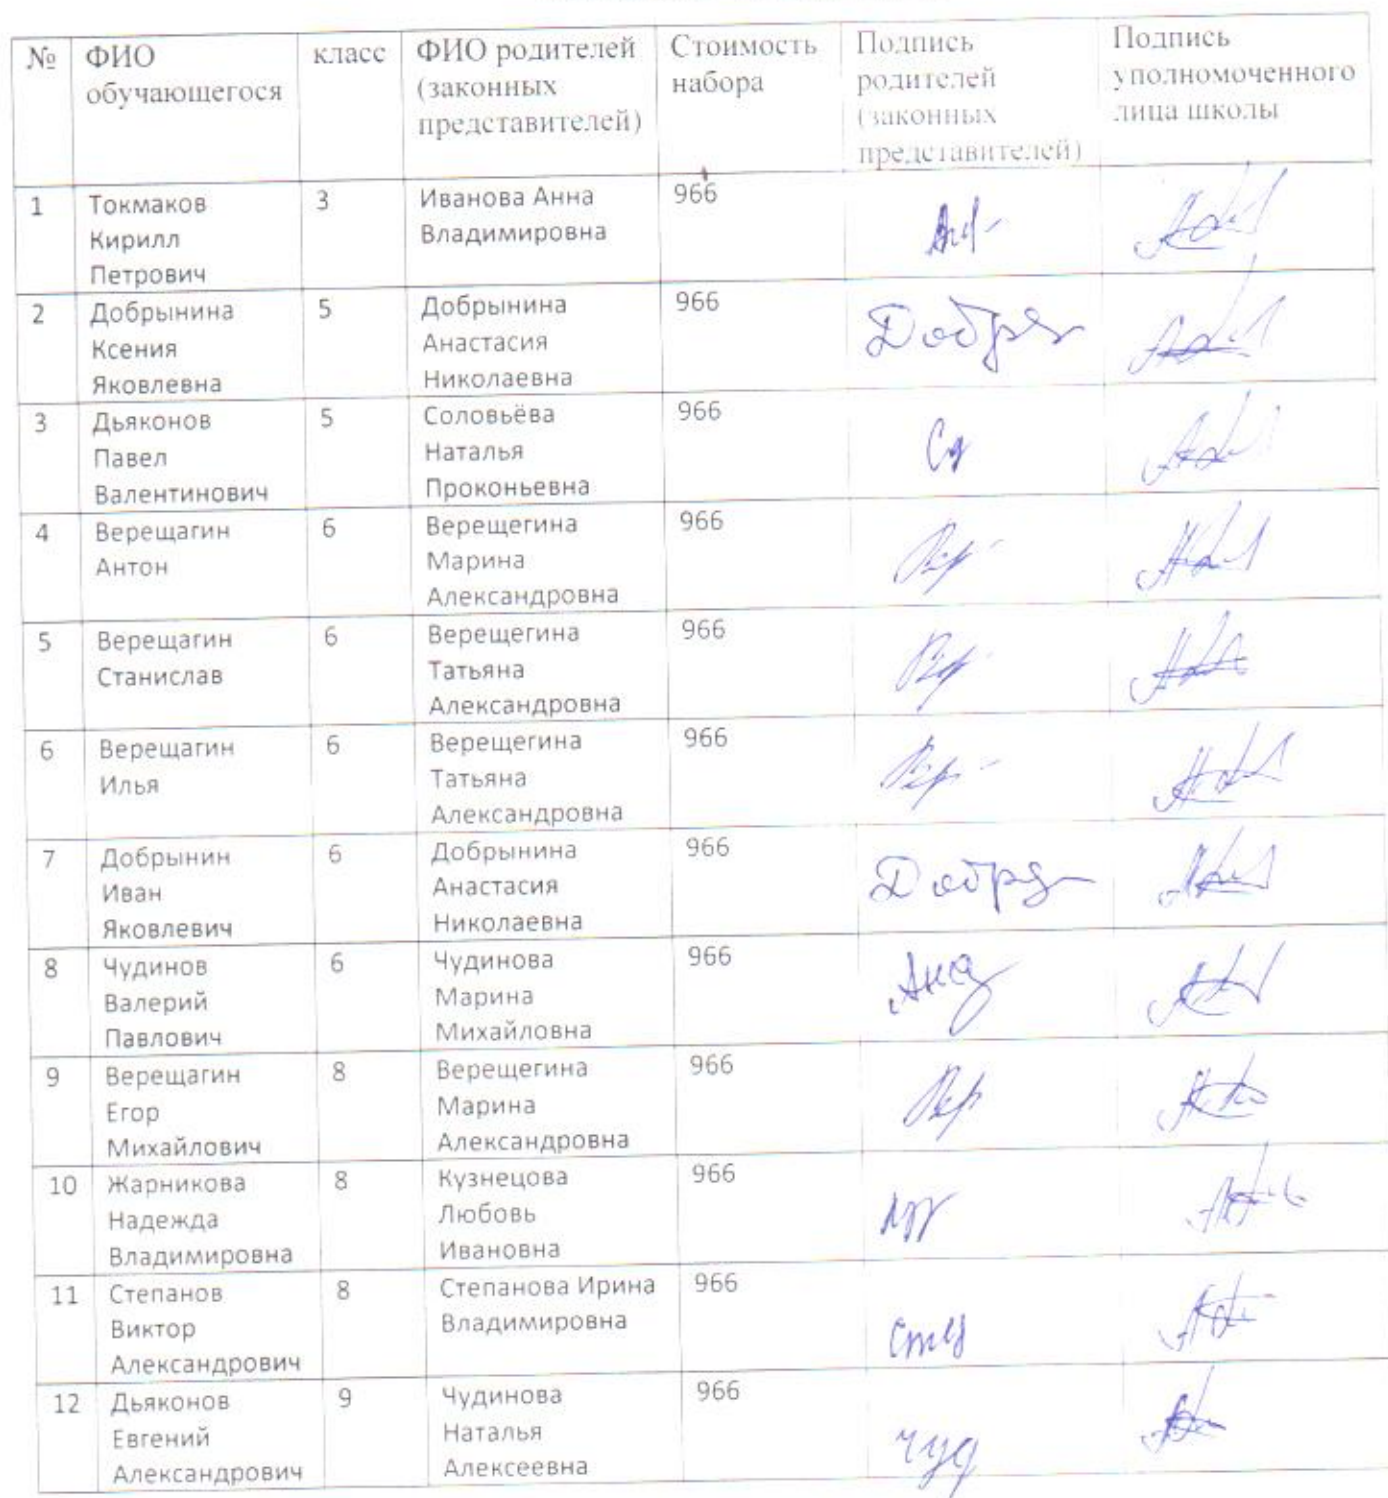 № ФИО обучающегося класс ФИО родителей (законных представителей) Стоимость набора Подпись родителей (законных представителей) Подпись уполномоченного лица школы
1 Токмаков Кирилл Петрович 3 Иванова Анна Владимировна 966
2 Добрынина Ксения Яковлевна 5 Добрынина Анастасия Николаевна 966
3 Дьяконов Павел Валентинович 5 Соловьёва Наталья Проконьевна 966
4 Верещагин Антон 6 Верещегина Марина Александровна 966
5 Верещагин Станислав 6 Верещегина Татьяна Александровна 966
6 Верещагин Илья 6 Верещегина Татьяна Александровна 966
7 Добрынин Иван Яковлевич 6 Добрынина Анастасия Николаевна 966
8 Чудинов Валерий Павлович 6 Чудинова Марина Михайловна 966
9 Верещагин Егор Михайлович 8 Верещегина Марина Александровна 966
10 Жарникова Надежда Владимировна 8 Кузнецова Любовь Ивановна 966
11 Степанов Виктор Александрович 8 Степанова Ирина Владимировна 966
12 Дьяконов Евгений Александрович 9 Чудинова Наталья Алексеевна 966 чуд